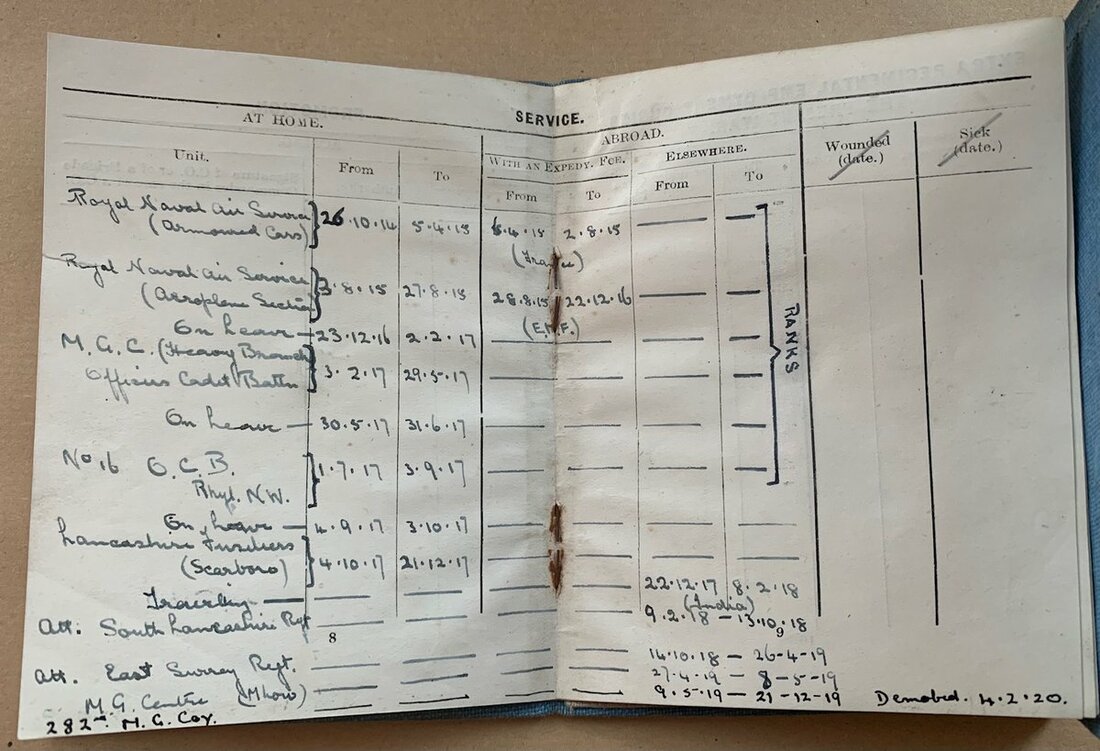 SERVICE.
AT HOME. ABROAD.
WITH AN EXPEDY. FCE. ELSEWHERE. Wounded (date.) Sick (date.)
Unit. From To From To From To
Royal Naval Air Service (Armoured Cars) } 26.10.14 5.4.15 6.4.15 2.8.15 — —
(France)
Royal Naval Air Service (Aeroplane Section) } 3.8.15 27.8.15 28.8.15 22.12.16 — —
(E.M.F.)
On leave — 23.12.16 2.2.17 — — — —
RANKS
M.G.C. (Heavy Branch)
Officers Cadet Battn } 3.2.17 29.5.17 — — — —
On leave — 30.5.17 31.6.17 — — — —
No 16 O.C.B.
Rhyl. N.W. } 1.7.17 3.9.17 — — — —
On leave — 4.9.17 3.10.17 — — — —
Lancashire Fusiliers
(Scarboro) } 4.10.17 21.12.17 — — — —
Travelling — — — — — 22.12.17 8.2.18
(India)
Att. South Lancashire Regt — — — — 9.2.18 — 13.10.18
8 9
Att. East Surrey Regt. — — — — 14.10.18 — 26-4-19
M.G. Centre (Mhow) — — — — 27.4.19 — 8-5-19
282nd. M.G. Coy. — — — — 9.5.19 — 21-12-19 Demobed. 4.2.20.